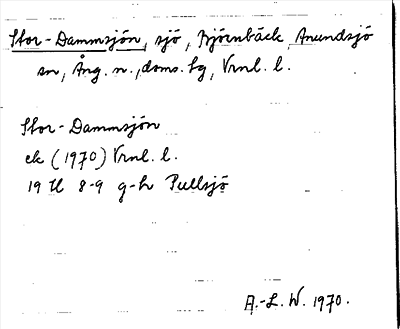 Stor-Dammsjön, sjö, Björnbäck Anundsjö
sn, Ång. n., doms. hg, Vrnl. l.
Stor-Dammsjön
ek (1970) Vrnl. l.
19 H 8-9 g-h Pullsjö
A.-L. W. 1970.